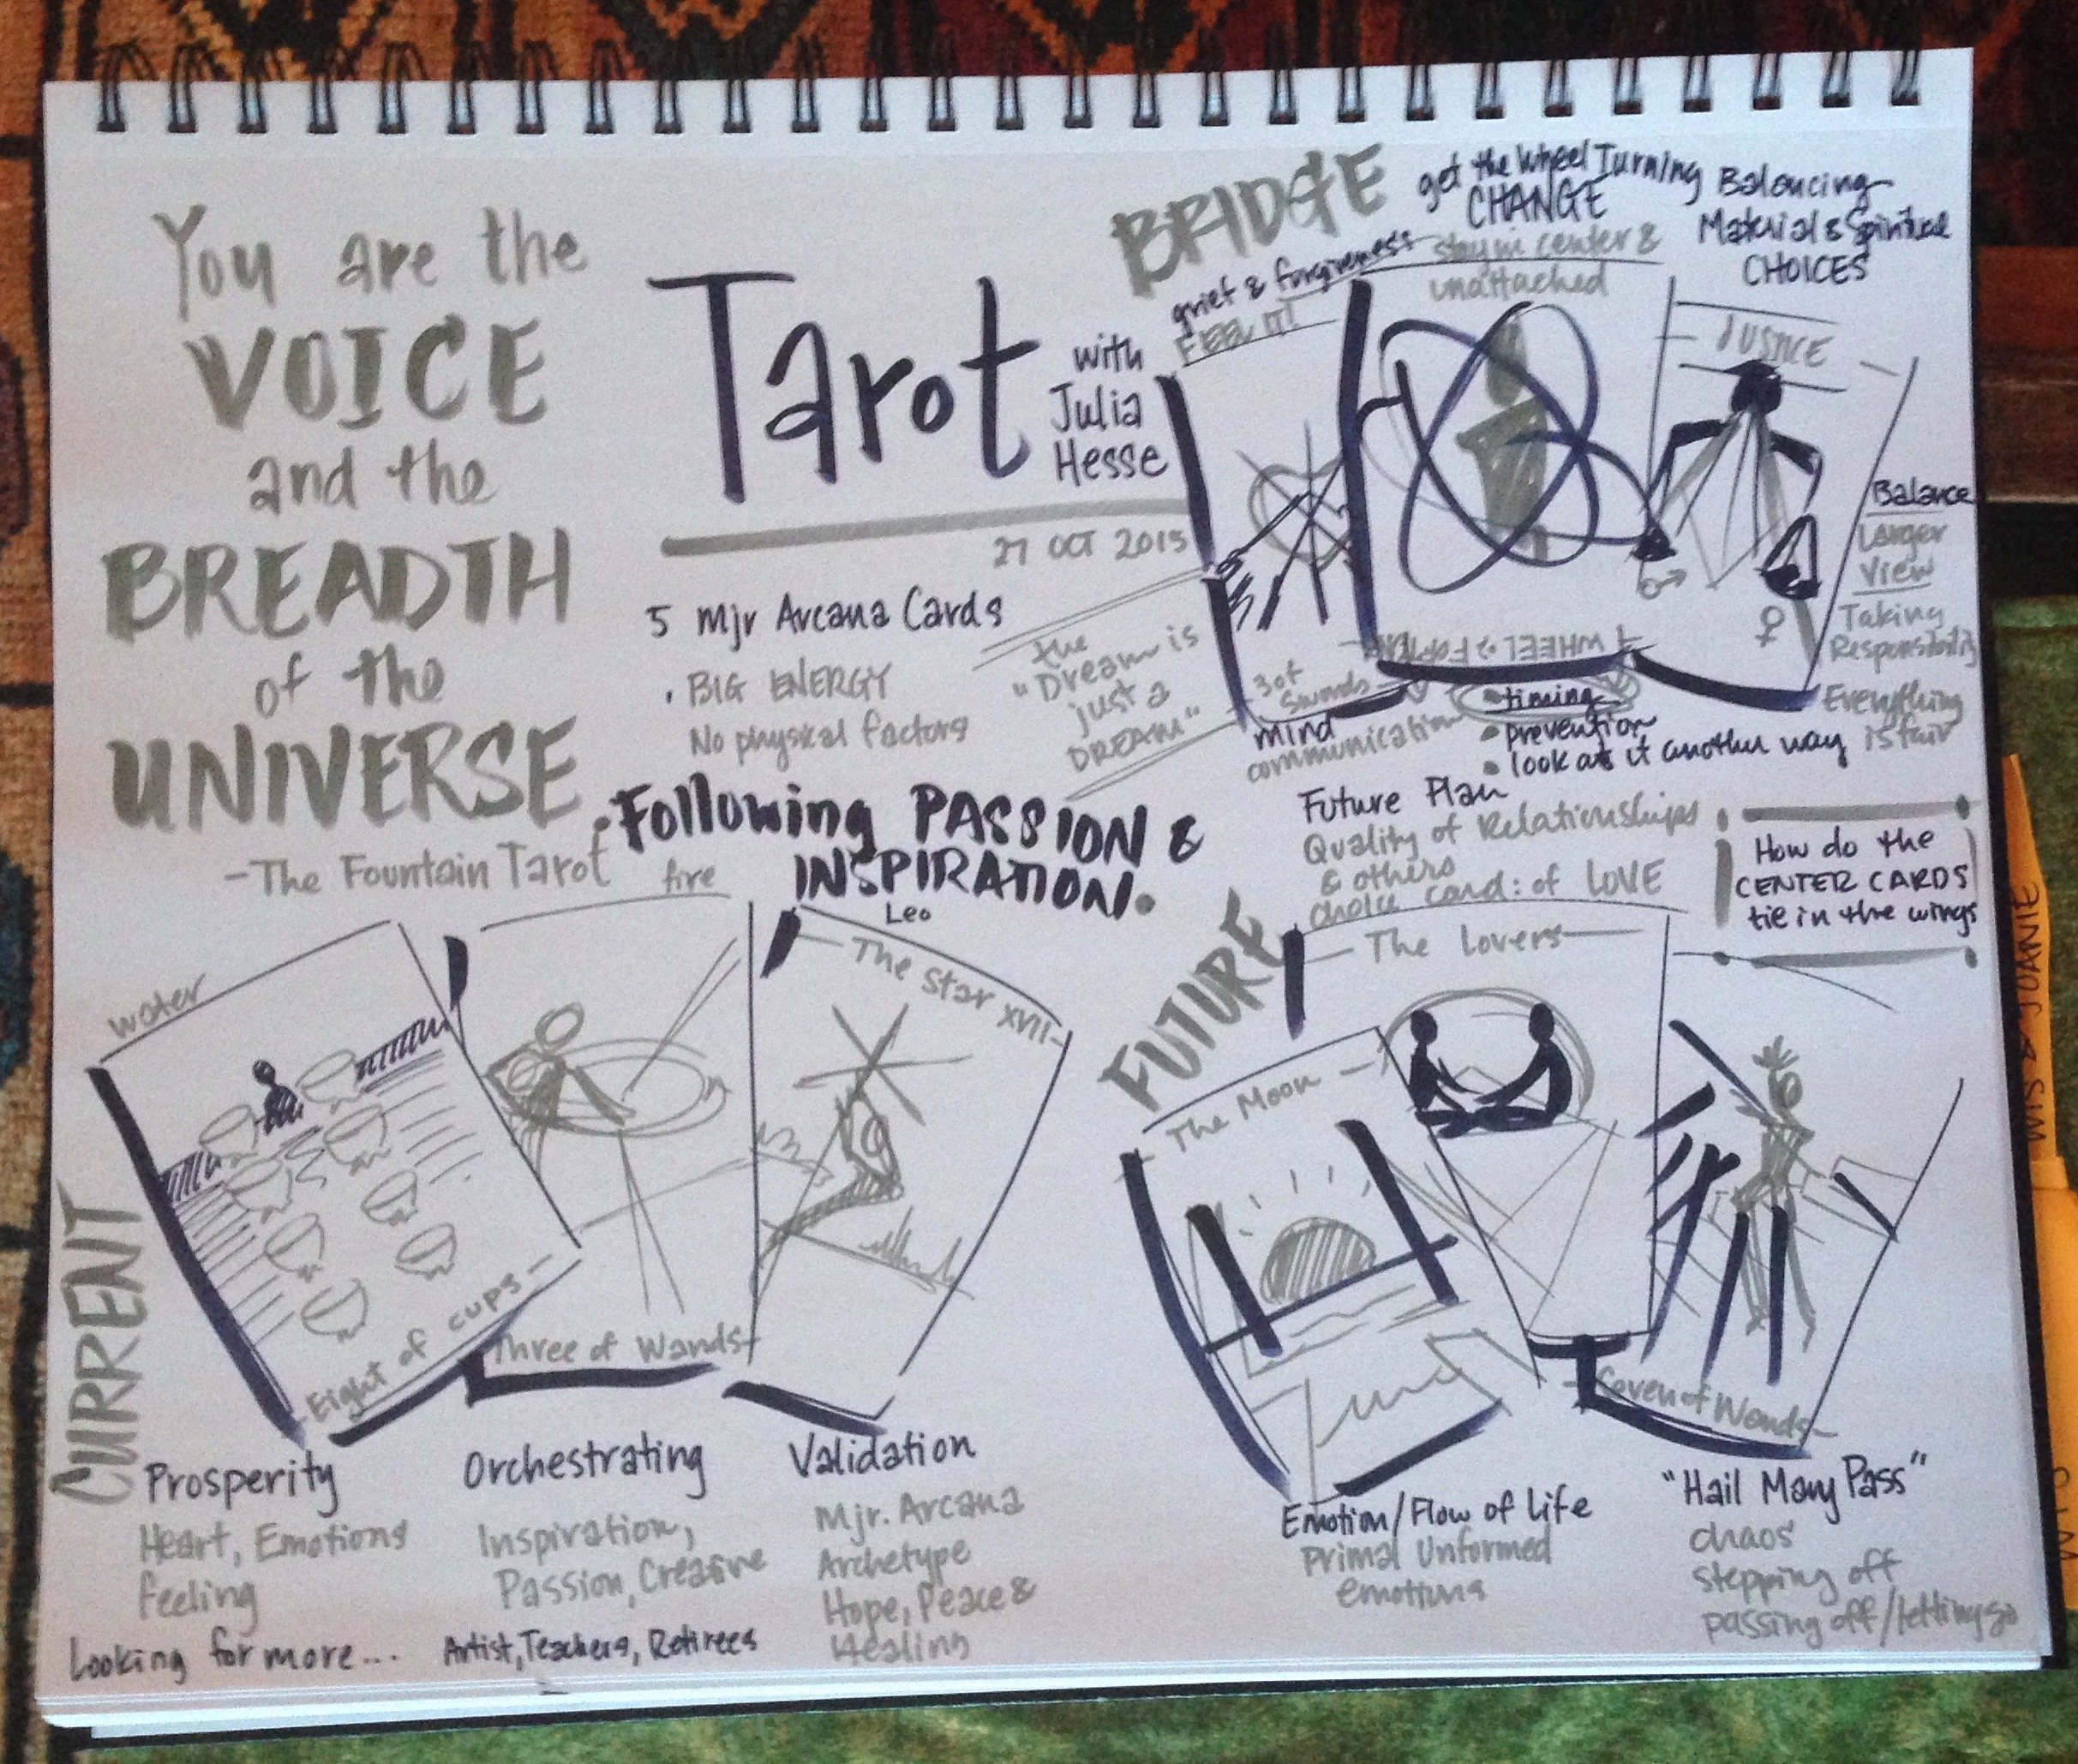 You are the
VOICE
and the
BREADTH
of the
UNIVERSE
-The Fountain Tarot
Tarot
with
Julia
Hesse
27 OCT 2015
5 Mjr Arcana Cards
. BIG ENERGY
No physical factors
the
"Dream is
just a
DREAM"
• Following PASSION &
INSPIRATION.
BRIDGE
grief & forgiveness
FEEL IT!
get the Wheel Turning
CHANGE
stay in center &
unattached
Balancing
Material & Spiritual
CHOICES
JUSTICE
♂
♀
Balance
Larger
View
Taking
Responsibility
Everything
is fair
3 of
Swords
mind
communication
WHEEL OF FORTUNE
• timing
• prevention
• look at it another way
CURRENT
water
Eight of cups
Prosperity
Heart, Emotions
feeling
Looking for more...
fire
Three of Wands
Orchestrating
Inspiration,
Passion, Creative
Artist, Teachers, Retirees
Leo
The Star XVII
Validation
Mjr. Arcana
Archetype
Hope, Peace &
Healing
Future Plan
Quality of Relationships
& others
choice card: of LOVE
How do the
CENTER CARDS
tie in the wings
FUTURE
The Moon
Emotion/Flow of life
Primal Unformed
emotions
The Lovers
of Wands
"Hail Mary Pass"
chaos
stepping off
passing off/letting go
& JOANIE